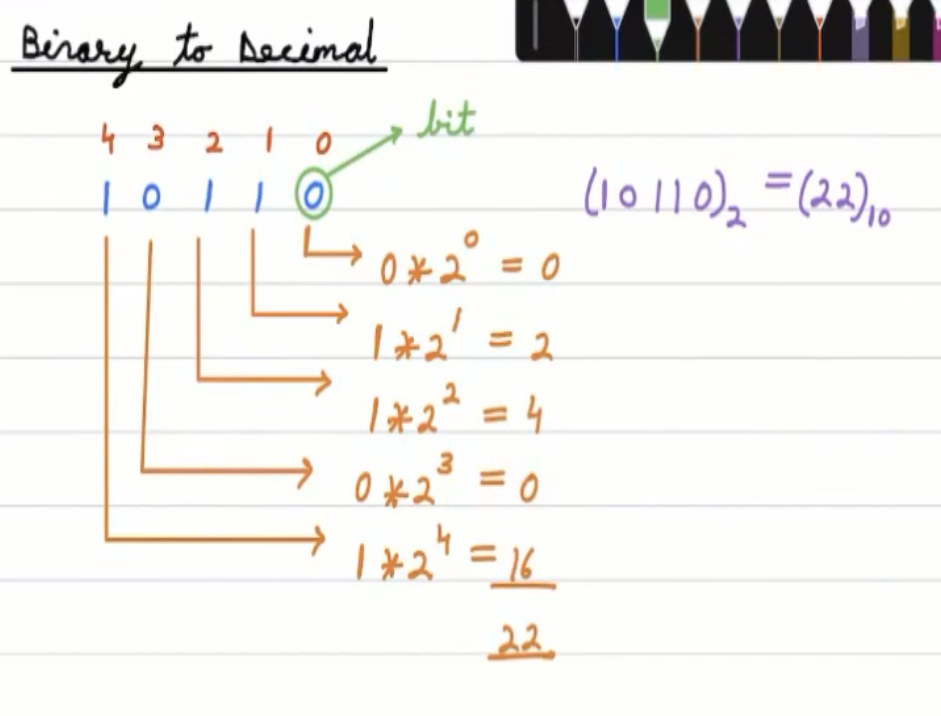 Binary to Decimal
4 3 2 1 0
bit
1 0 1 1 0
(10110)₂ = (22)₁₀
0 * 2⁰ = 0
1 * 2¹ = 2
1 * 2² = 4
0 * 2³ = 0
1 * 2⁴ = 16
22